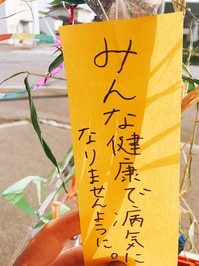 みんな健康で病気に
なりませんように。